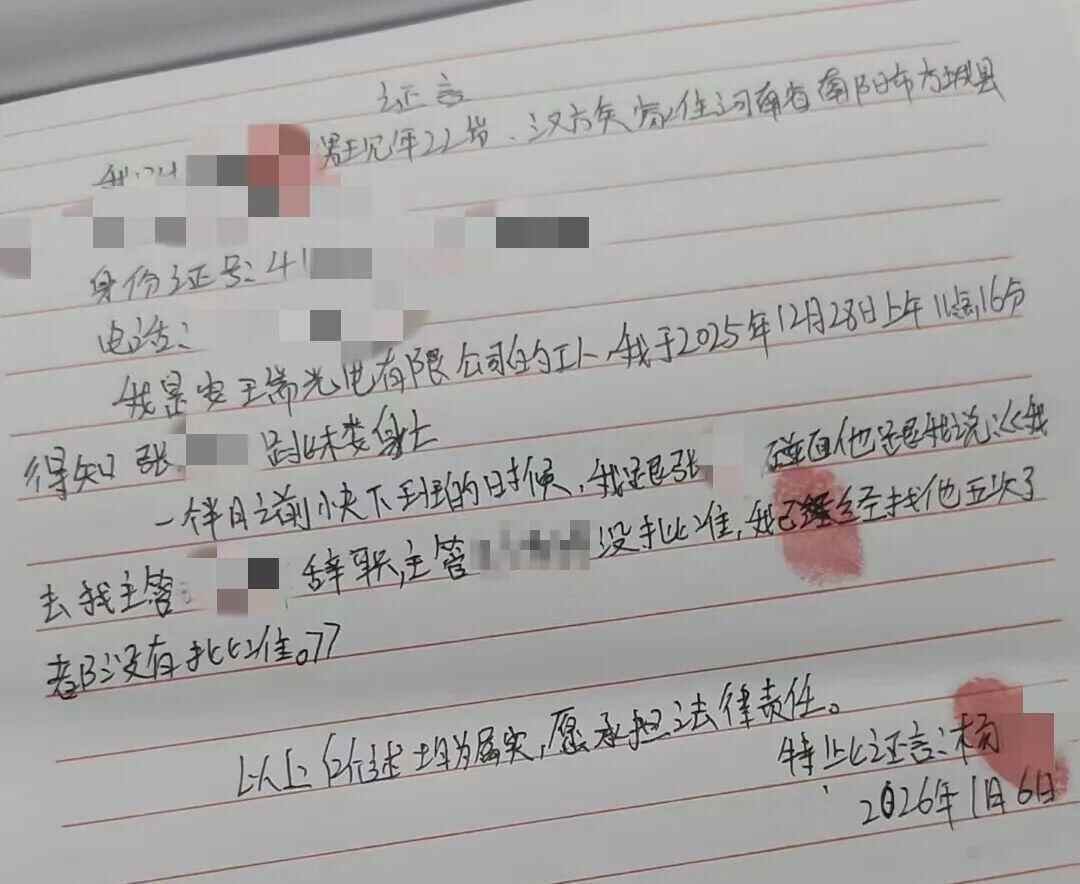 证言
我叫 男现年22岁、汉族家住河南省南阳市方城县
身份证号：41
电话：
我是安 瑞光电有限公司的工人、我于2025年12月28日上午11点16分
得知张 跳楼
一个半月之前 下班的时候，我跟张 碰面他还跟我说："我
去找主管 辞职，主管 没批准，我已经找他五次了
都没有批准。"
以上 述均为属实，愿承担法律责任。
特此证言：杨
2026年1月6日